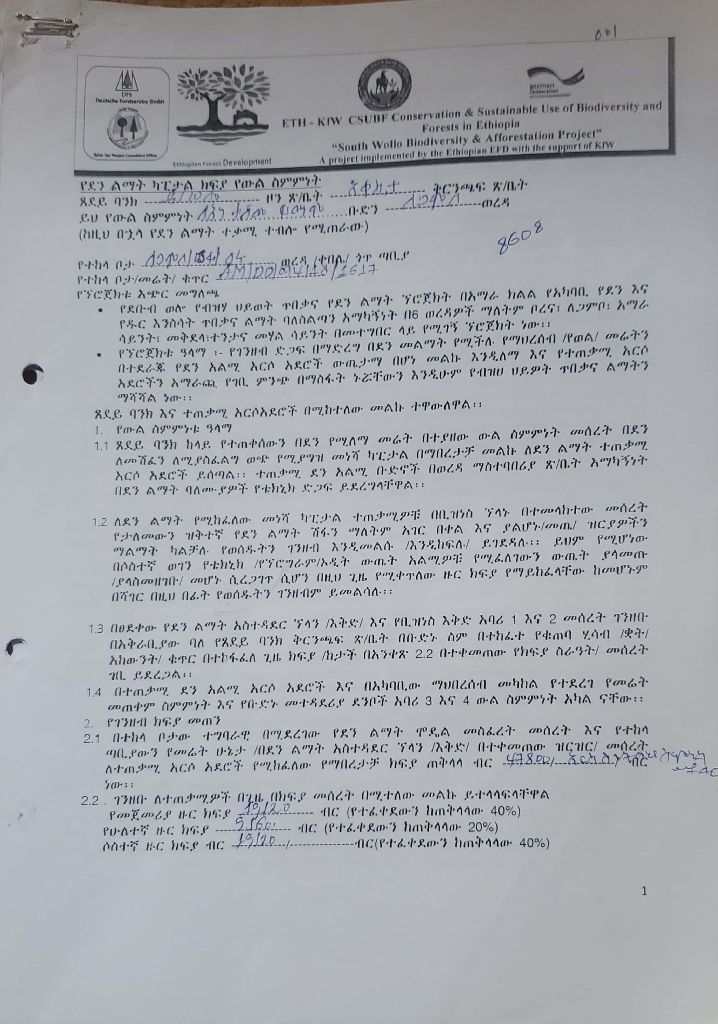 001
DFS
Deutsche Forstservice GmbH
Ethiopian Forest Development
german
cooperation
ETH - KfW CSUBF Conservation & Sustainable Use of Biodiversity and
Forests in Ethiopia
"South Wollo Biodiversity & Afforestation Project"
A project implemented by the Ethiopian EFD with the support of KfW
የደን ልማት ካፒታል ክፍያ የውል ስምምነት
ጸደይ ባንክ ዞን ጽ/ቤት አቀስታ ቅርንጫፍ ጽ/ቤት
ይህ የውል ስምምነት ቡድን ለጋምቦ ወረዳ
(ከዚህ በኋላ የደን ልማት ተቃሚ ተብሎ የሚጠራው)
8608
የተከላ ቦታ ለጋምቦ/034/04 ወረዳ /ቀበሌ/ ጎጥ ጣቢያ
የተከላ ቦታ/መሬት/ ቁጥር
የፕሮጀክቱ አጭር መግለጫ
• የደቡብ ወሎ የብዝሃ ህይወት ጥበቃና የደን ልማት ፕሮጀክት በአማራ ክልል የአካባቢ የደን እና
የዱር እንስሳት ጥበቃና ልማት ባለስልጣን አማካኝነት በ6 ወረዳዎች ማለትም ቦረና፣ ለጋምቦ፣ አማራ
ሳይንት፣ መቅደላ፣ተንታና መሃል ሳይንት በመተግበር ላይ የሚገኝ ፕሮጀክት ነው፡፡
• የፕሮጀክቱ ዓላማ ፡- የገንዘብ ድጋፍ በማድረግ በደን መልማት የሚችሉ የማህረሰብ /የወል/ መሬትን
በተደራጁ የደን አልሚ አርሶ አደሮች ውጤታማ በሆነ መልኩ እንዲለማ እና የተጠቃሚ አርሶ
አደሮችን አማራጪ የገቢ ምንጭ በማስፋት ኑሯቸውን እንዲሁም የብዝሀ ህይዎት ጥበቃና ልማትን
ማሻሻል ነው፡፡
ጸደይ ባንክ እና ተጠቃሚ አርሶአደሮች በሚከተለው መልኩ ተዋውለዋል፡፡
1. የውል ስምምነቱ ዓላማ
1.1 ጸደይ ባንክ ከላይ የተጠቀሰውን በደን የሚለማ መሬት በተያዘው ውል ስምምነት መሰረት በደን
ለመሸፈን ለሚያስፈልግ ወጭ የሚያግዝ መነሻ ካፒታል በማበረታቻ መልኩ ለደን ልማት ተጠቃሚ
አርሶ አደሮች ይሰጣል፡፡ ተጠቃሚ ደን አልሚ ቡድኖች በወረዳ ማስተባበሪያ ጽ/ቤት አማካኝነት
በደን ልማት ባለሙያዎች የቴክኒክ ድጋፍ ይደረግላቸዋል፡፡
1.2 ለደን ልማት የሚከፈለው መነሻ ካፒታል ተጠቃሚዎቹ በቢዝነስ ፕላኑ በተመላከተው መሰረት
የታለመውን ዝቅተኛ የደን ልማት ሽፋን ማለትም አገር በቀል እና ያልሆኑ/መጤ/ ዝርያዎችን
ማልማት ካልቻሉ የወሰዱትን ገንዘብ እንዲመልሱ /እንዲከፍሉ/ ይገደዳሉ፡፡ ይህም የሚሆነው
በሶስተኛ ወገን የቴክኒክ /የፕሮግራም/ኦዲት ውጤት አልሚዎቹ የሚፈለገውን ውጤት ያላመጡ
/ያላስመዘገቡ/ መሆኑ ሲረጋገጥ ሲሆን በዚህ ጊዜ የሚቀጥለው ዙር ክፍያ የማይከፈላቸው ከመሆኑም
በሻገር በዚህ በፊት የወሰዱትን ገንዘብም ይመልሳሉ፡፡
1.3 በፀደቀው የደን ልማት አስተዳደር ፕላን /እቅድ/ እና የቢዝነስ እቅድ አባሪ 1 እና 2 መሰረት ገንዘቡ
በአቅራቢያው ባለ የጸደይ ባንክ ቅርንጫፍ ጽ/ቤት በቡድኑ ስም በተከፈተ የቁጠባ ሂሳብ /ቋት/
አከውንት/ ቁጥር በተከፋፈለ ጊዜ ክፍያ /ከታች በአንቀጽ 2.2 በተቀመጠው የክፍያ ስራዓት/ መሰረት
ገቢ ይደረጋል፡፡
1.4 በተጠቃሚ ደን አልሚ አርሶ አደሮች እና በአካባቢው ማህበረሰብ መካከል የተደረገ የመሬት
መጠቀም ስምምነት እና የቡድኑ መተዳደሪያ ደንቦች አባሪ 3 እና 4 ውል ስምምነት አካል ናቸው፡፡
2. የገንዘብ ክፍያ መጠን
2.1 በተከላ ቦታው ተግባራዊ በሚደረገው የደን ልማት ሞዴል መስፈረት መሰረት እና የተከላ
ጣቢያውን የመሬት ሁኔታ /በደን ልማት አስተዳደር ፕላን /እቅድ/ በተቀመጠው ዝርዝር/ መሰረት
ለተጠቃሚ አርሶ አደሮች የሚከፈለው የማበረታቻ ክፍያ ጠቅላላ ብር 47800/ ብር
ነው፡፡
2.2 . ገንዘቡ ለተጠቃሚዎች በጊዜ በክፍያ መሰረት በሚተለው መልኩ ይተላለፍላቸዋል
የመጀመሪያ ዙር ክፍያ 19120 ብር (የተፈቀደውን ከጠቅላላው 40%)
የሁለተኛ ዙር ክፍያ 9560 ብር (የተፈቀደውን ከጠቅላላው 20%)
ሶስተኛ ዙር ክፍያ ብር 19120 / ብር(የተፈቀደውን ከጠቅላላው 40%)
1